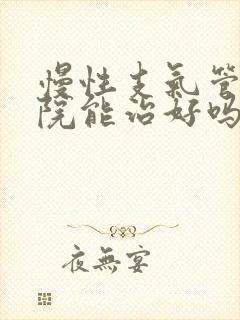 慢性支气管
院能治好吗
夜無宴